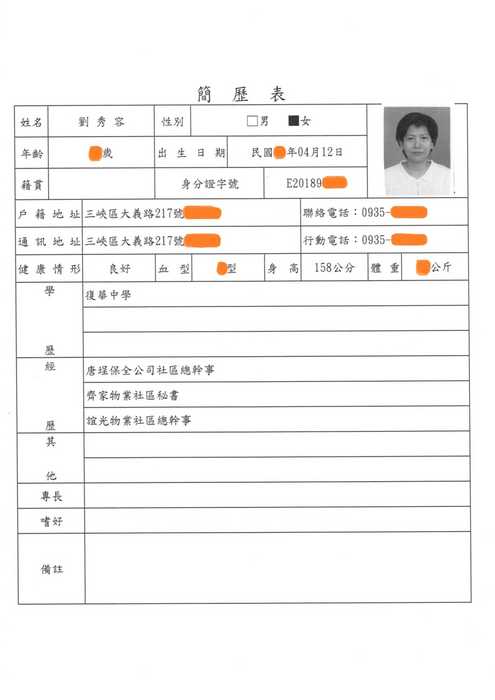 簡歷表
姓名 劉秀容 性別 □男 ■女
年齡 歲 出生日期 民國 年04月12日
籍貫 身分證字號 E20189
戶籍地址 三峽區大義路217號 聯絡電話：0935-
通訊地址 三峽區大義路217號 行動電話：0935-
健康情形 良好 血型 型 身高 158公分 體重 公斤
學歷 復華中學
經歷 唐堡保全公司社區總幹事
齊家物業社區秘書
誼光物業社區總幹事
其他
專長
嗜好
備註